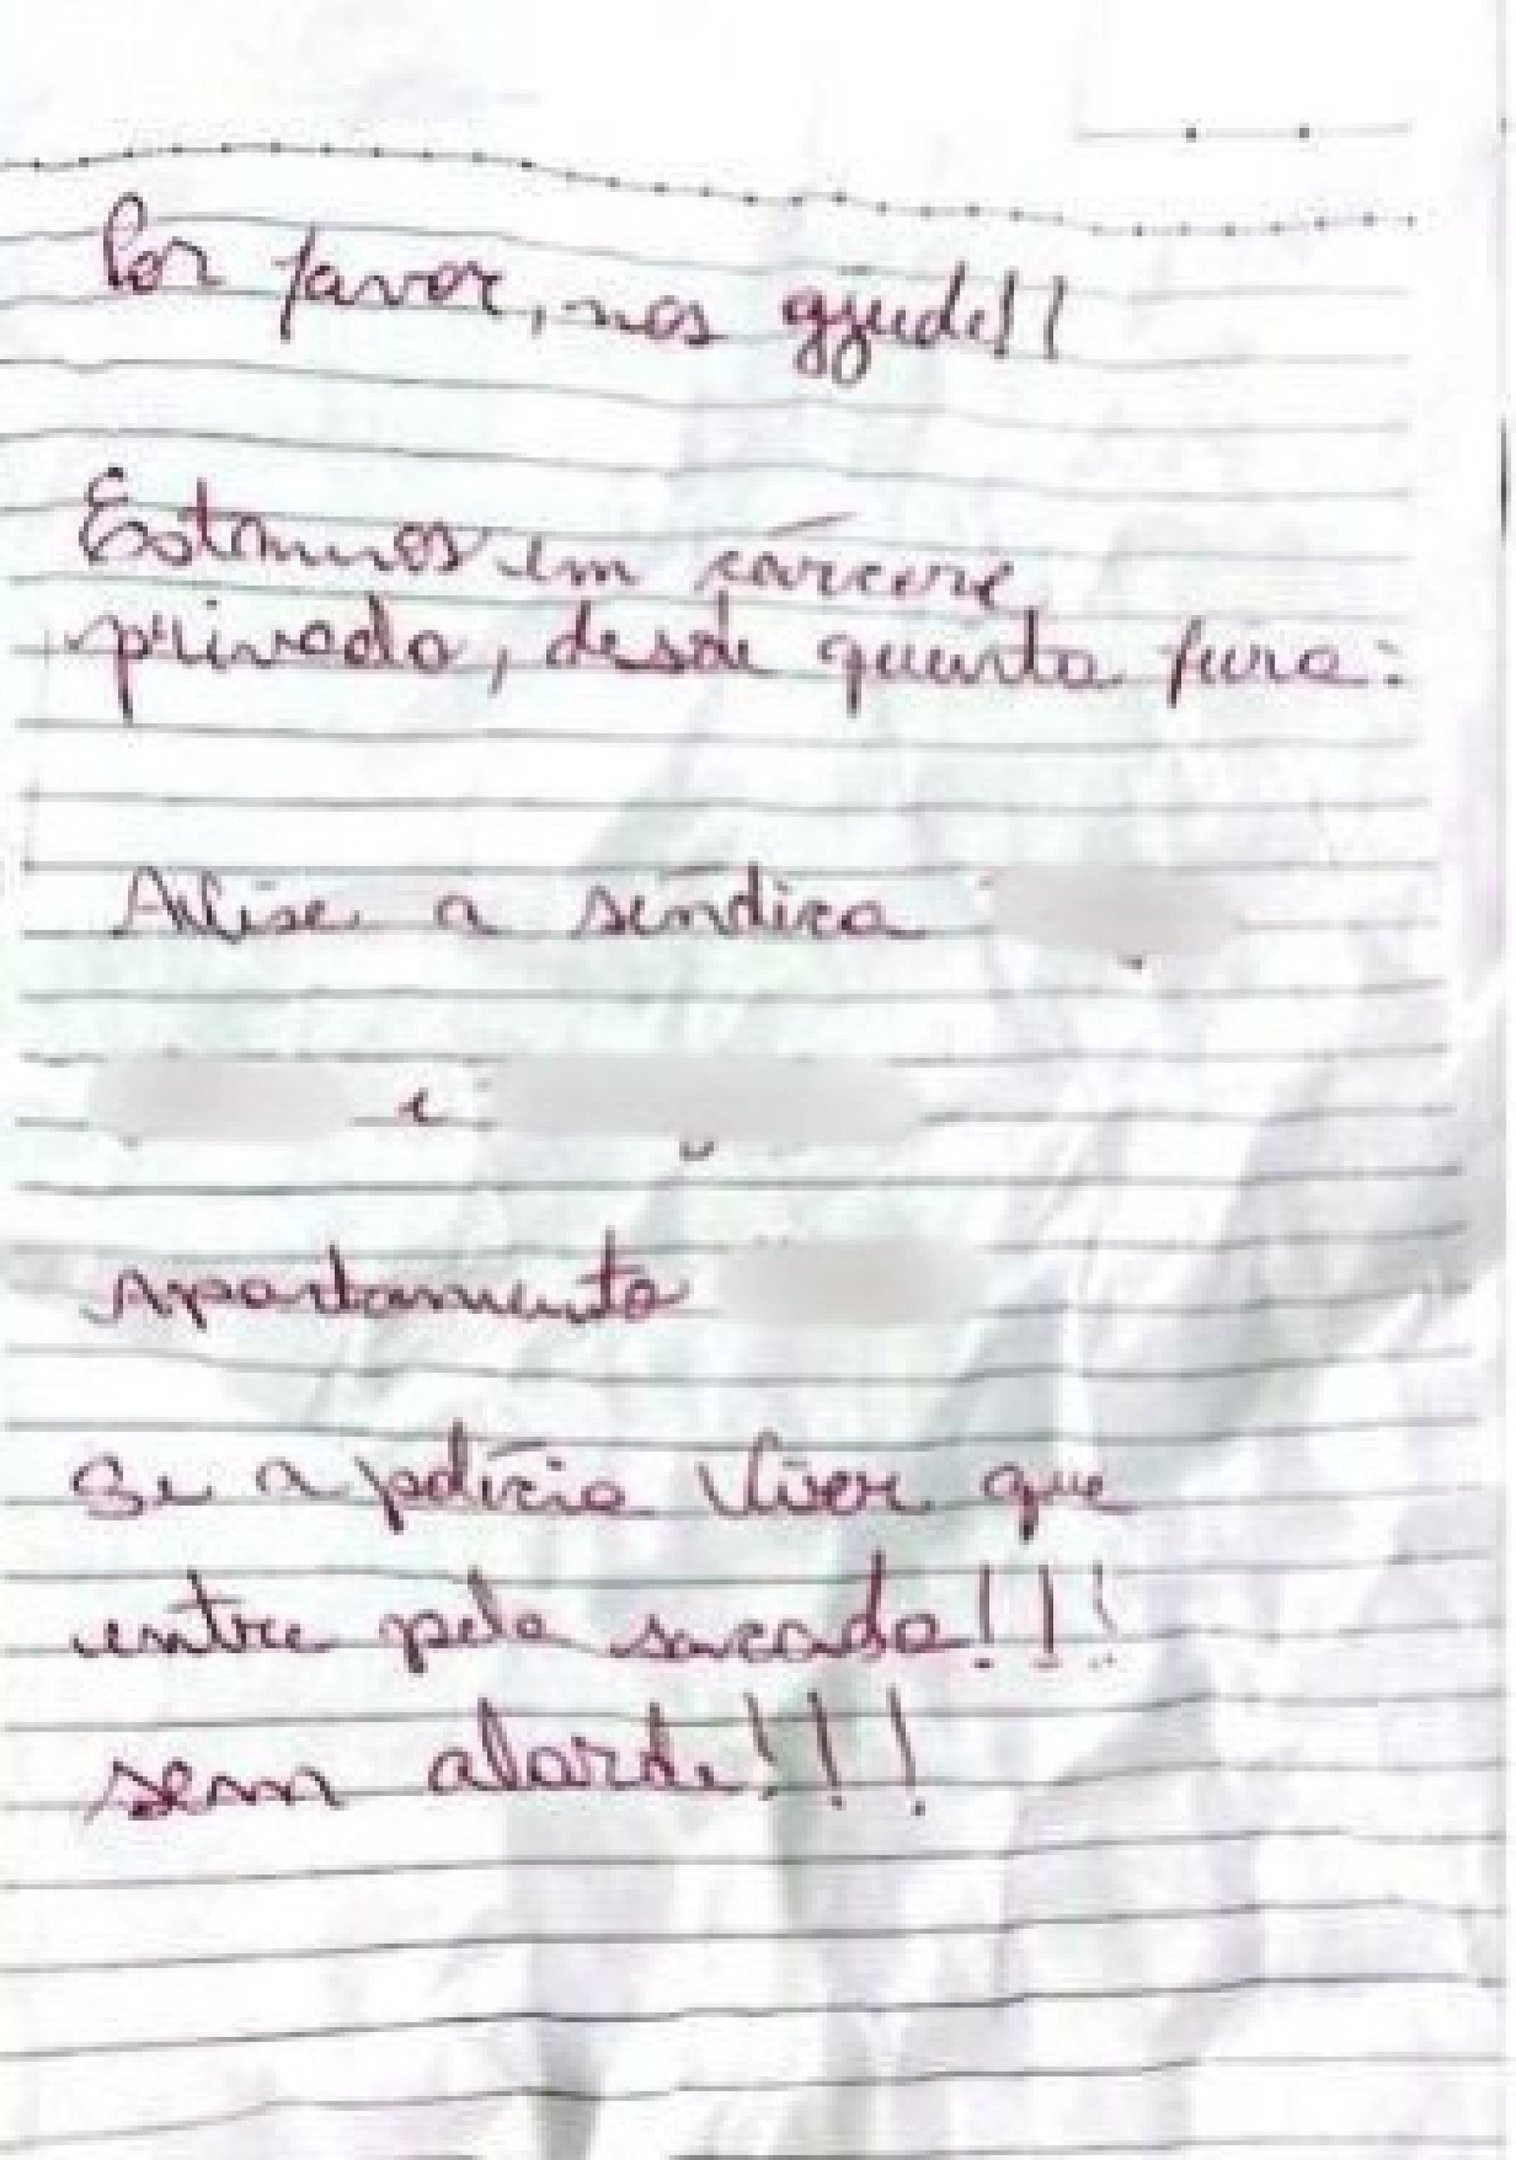 Por favor, nos ajude!!
Estamos em cárcere
privado, desde quinta feira.
Avise a síndica
e
Apartamento
Se a polícia vier que
entre pela sacada!!!
sem alarde!!!